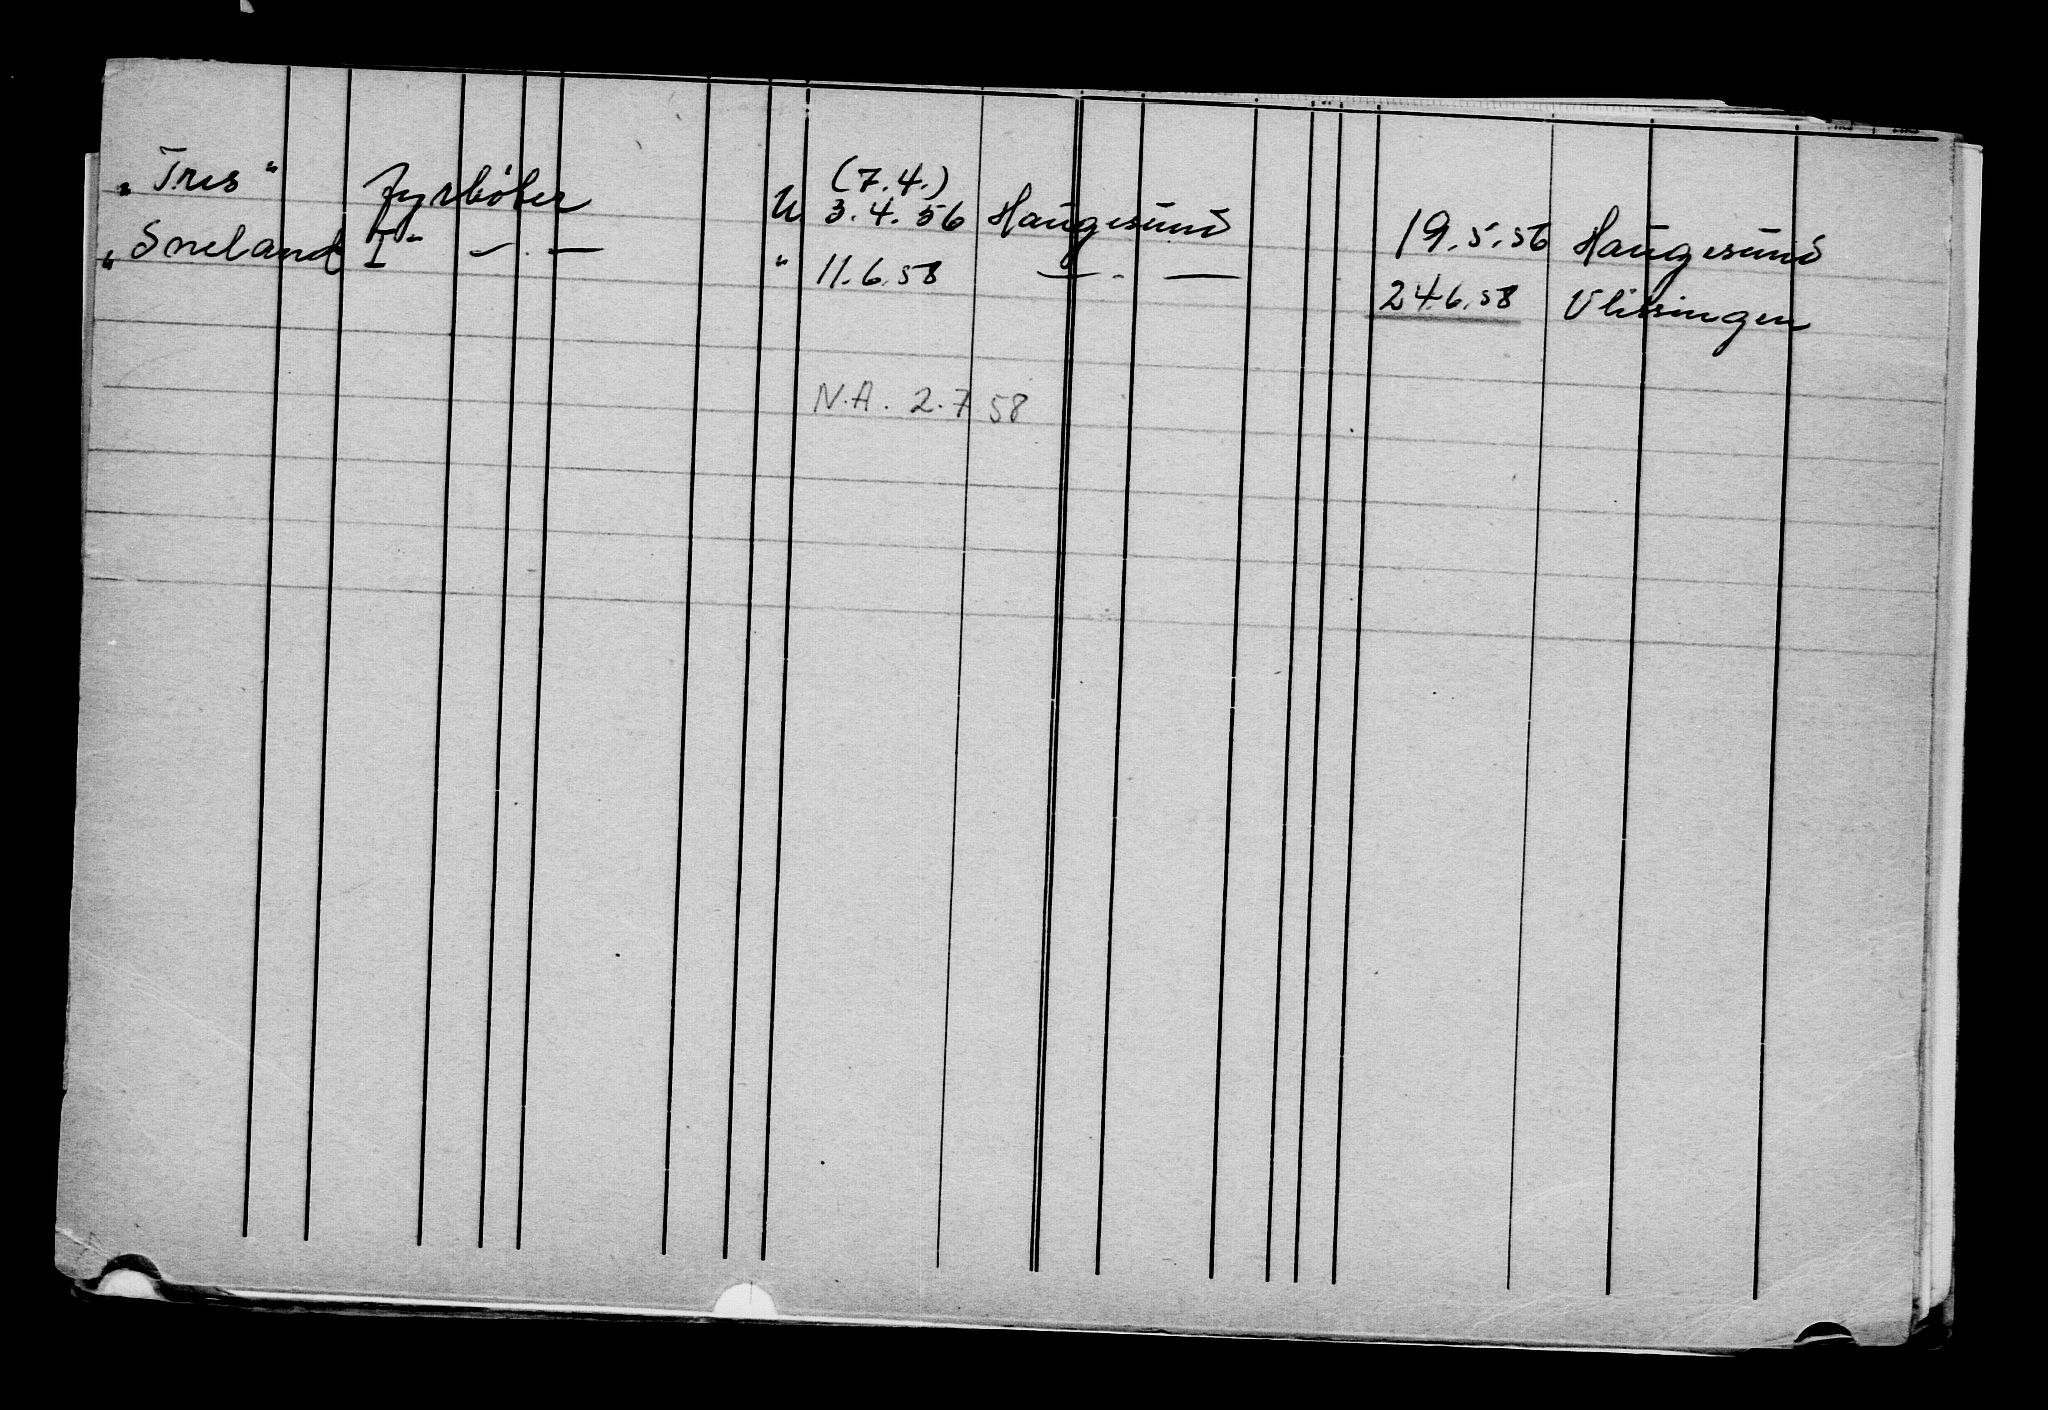 (7.4.)
„Tres“ Fyrböter U 3.4.56 Haugesund 19.5.56 Haugesund
„Sneland I“ — . — " 11.6.58 — " — 24.6.58 Vlissingen
N.A. 2.7 58